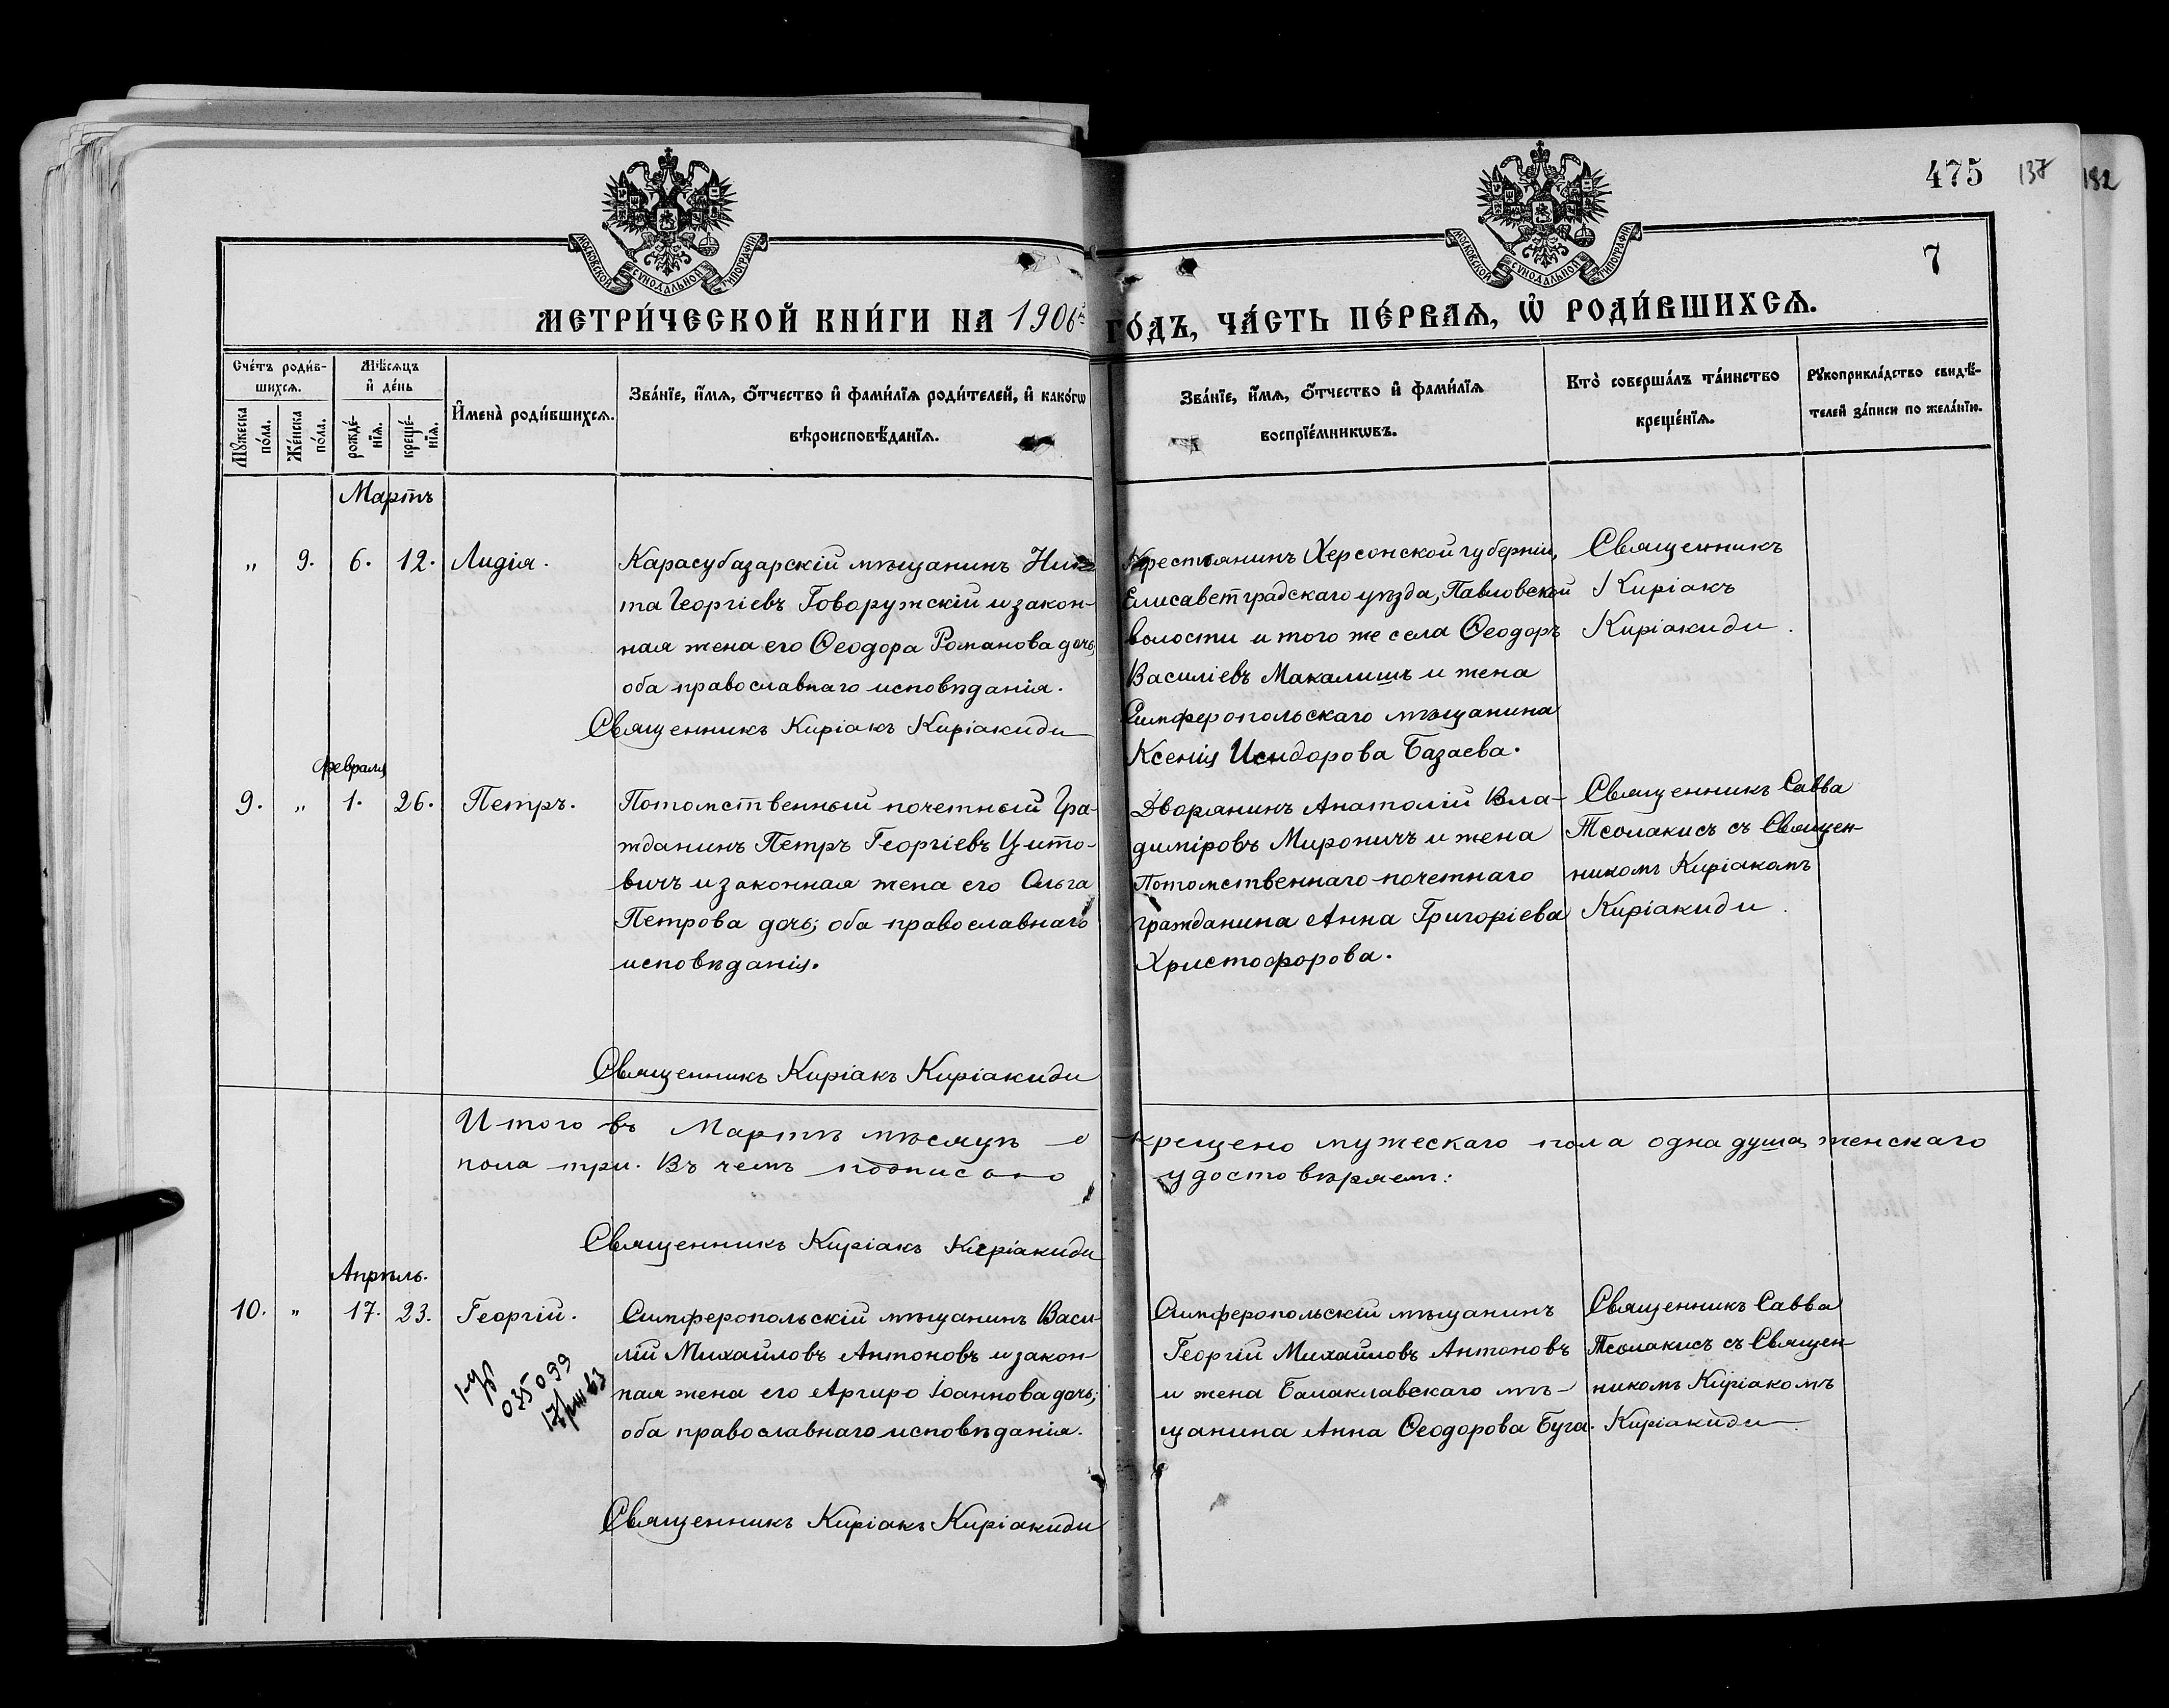 475 137 182
МОСКОВСКОЙ СѴНОДАЛЬНОЙ ТИПОГРАФІИ
МОСКОВСКОЙ СѴНОДАЛЬНОЙ ТИПОГРАФІИ
7
МЕТРИ́ЧЕСКОЙ КНИ́ГИ НА 1906й ГО́ДЪ, ЧА́СТЬ ПЕ́РВАѦ, Ѡ҆ РОДИ́ВШИХСѦ.
Сче́тъ роди́в-
шихсѧ.
Мꙋ́жеска по́ла.
Же́нска по́ла.
Мѣ́сѧцъ
и҆ де́нь
рожде́-
нїѧ.
креще́-
нїѧ.
И҆мена̀ роди́вшихсѧ.
Зва́нїе, и҆́мѧ, ѻ҆́тчество и҆ фами́лїѧ роди́телей, и҆ како́гѡ
вѣроисповѣ́данїѧ.
Зва́нїе, и҆́мѧ, ѻ҆́тчество и҆ фами́лїѧ
воспрїе́мникѡвъ.
Кто̀ соверша́лъ та́инство
креще́нїѧ.
Рꙋкоприкла́дство свидѣ́-
телей за́писи по жела́нїю.
Мартъ
„ 9. 6. 12. Лидія.
Карасубазарскій мѣщанинъ Ники-
та Георгіевъ Говоружскій и закон-
ная жена его Ѳеодора Романова дочь,
оба православнаго исповѣданія.
Священникъ Киріакъ Киріакиди
Крестьянинъ Херсонской губерніи,
Елисаветградскаго уѣзда, Павловской
волости и того же села Ѳеодоръ
Василіевъ Макалишъ и жена
Симферопольскаго мѣщанина
Ксенія Исидорова Базаева.
Священникъ
Киріакъ
Киріакиди.
Февраля
9. „ 1. 26. Петръ.
Потомственный почетный Гра-
жданинъ Петръ Георгіевъ Цито-
вичъ и законная жена его Ольга
Петрова дочь; оба православнаго
исповѣданія.
Священникъ Киріакъ Киріакиди
Дворянинъ Анатолій Вла-
диміровъ Мироничъ и жена
Потомственнаго почетнаго
гражданина Анна Григоріева
Христофорова.
Священникъ Савва
Тсолакисъ съ Священ-
никомъ Киріакомъ
Киріакиди.
Итого въ Мартѣ мѣсяцѣ о крещено мужескаго пола одна душа, женскаго
пола три. Въ чемъ удостовѣряем:
Священникъ Киріакъ Киріакиди
Апрѣль.
10. „ 17. 23. Георгій.
035099
Симферопольскій мѣщанинъ Васи-
лій Михайловъ Антоновъ и закон-
ная жена его Аргиро Іоаннова дочь;
оба православнаго исповѣданія.
Священникъ Киріакъ Киріакиди
Симферопольскій мѣщанинъ
Георгій Михайловъ Антоновъ
и жена Балаклавскаго мѣ-
щанина Анна Ѳеодорова Буга.
Священникъ Савва
Тсолакисъ съ Священ-
никомъ Киріакомъ
Киріакиди.